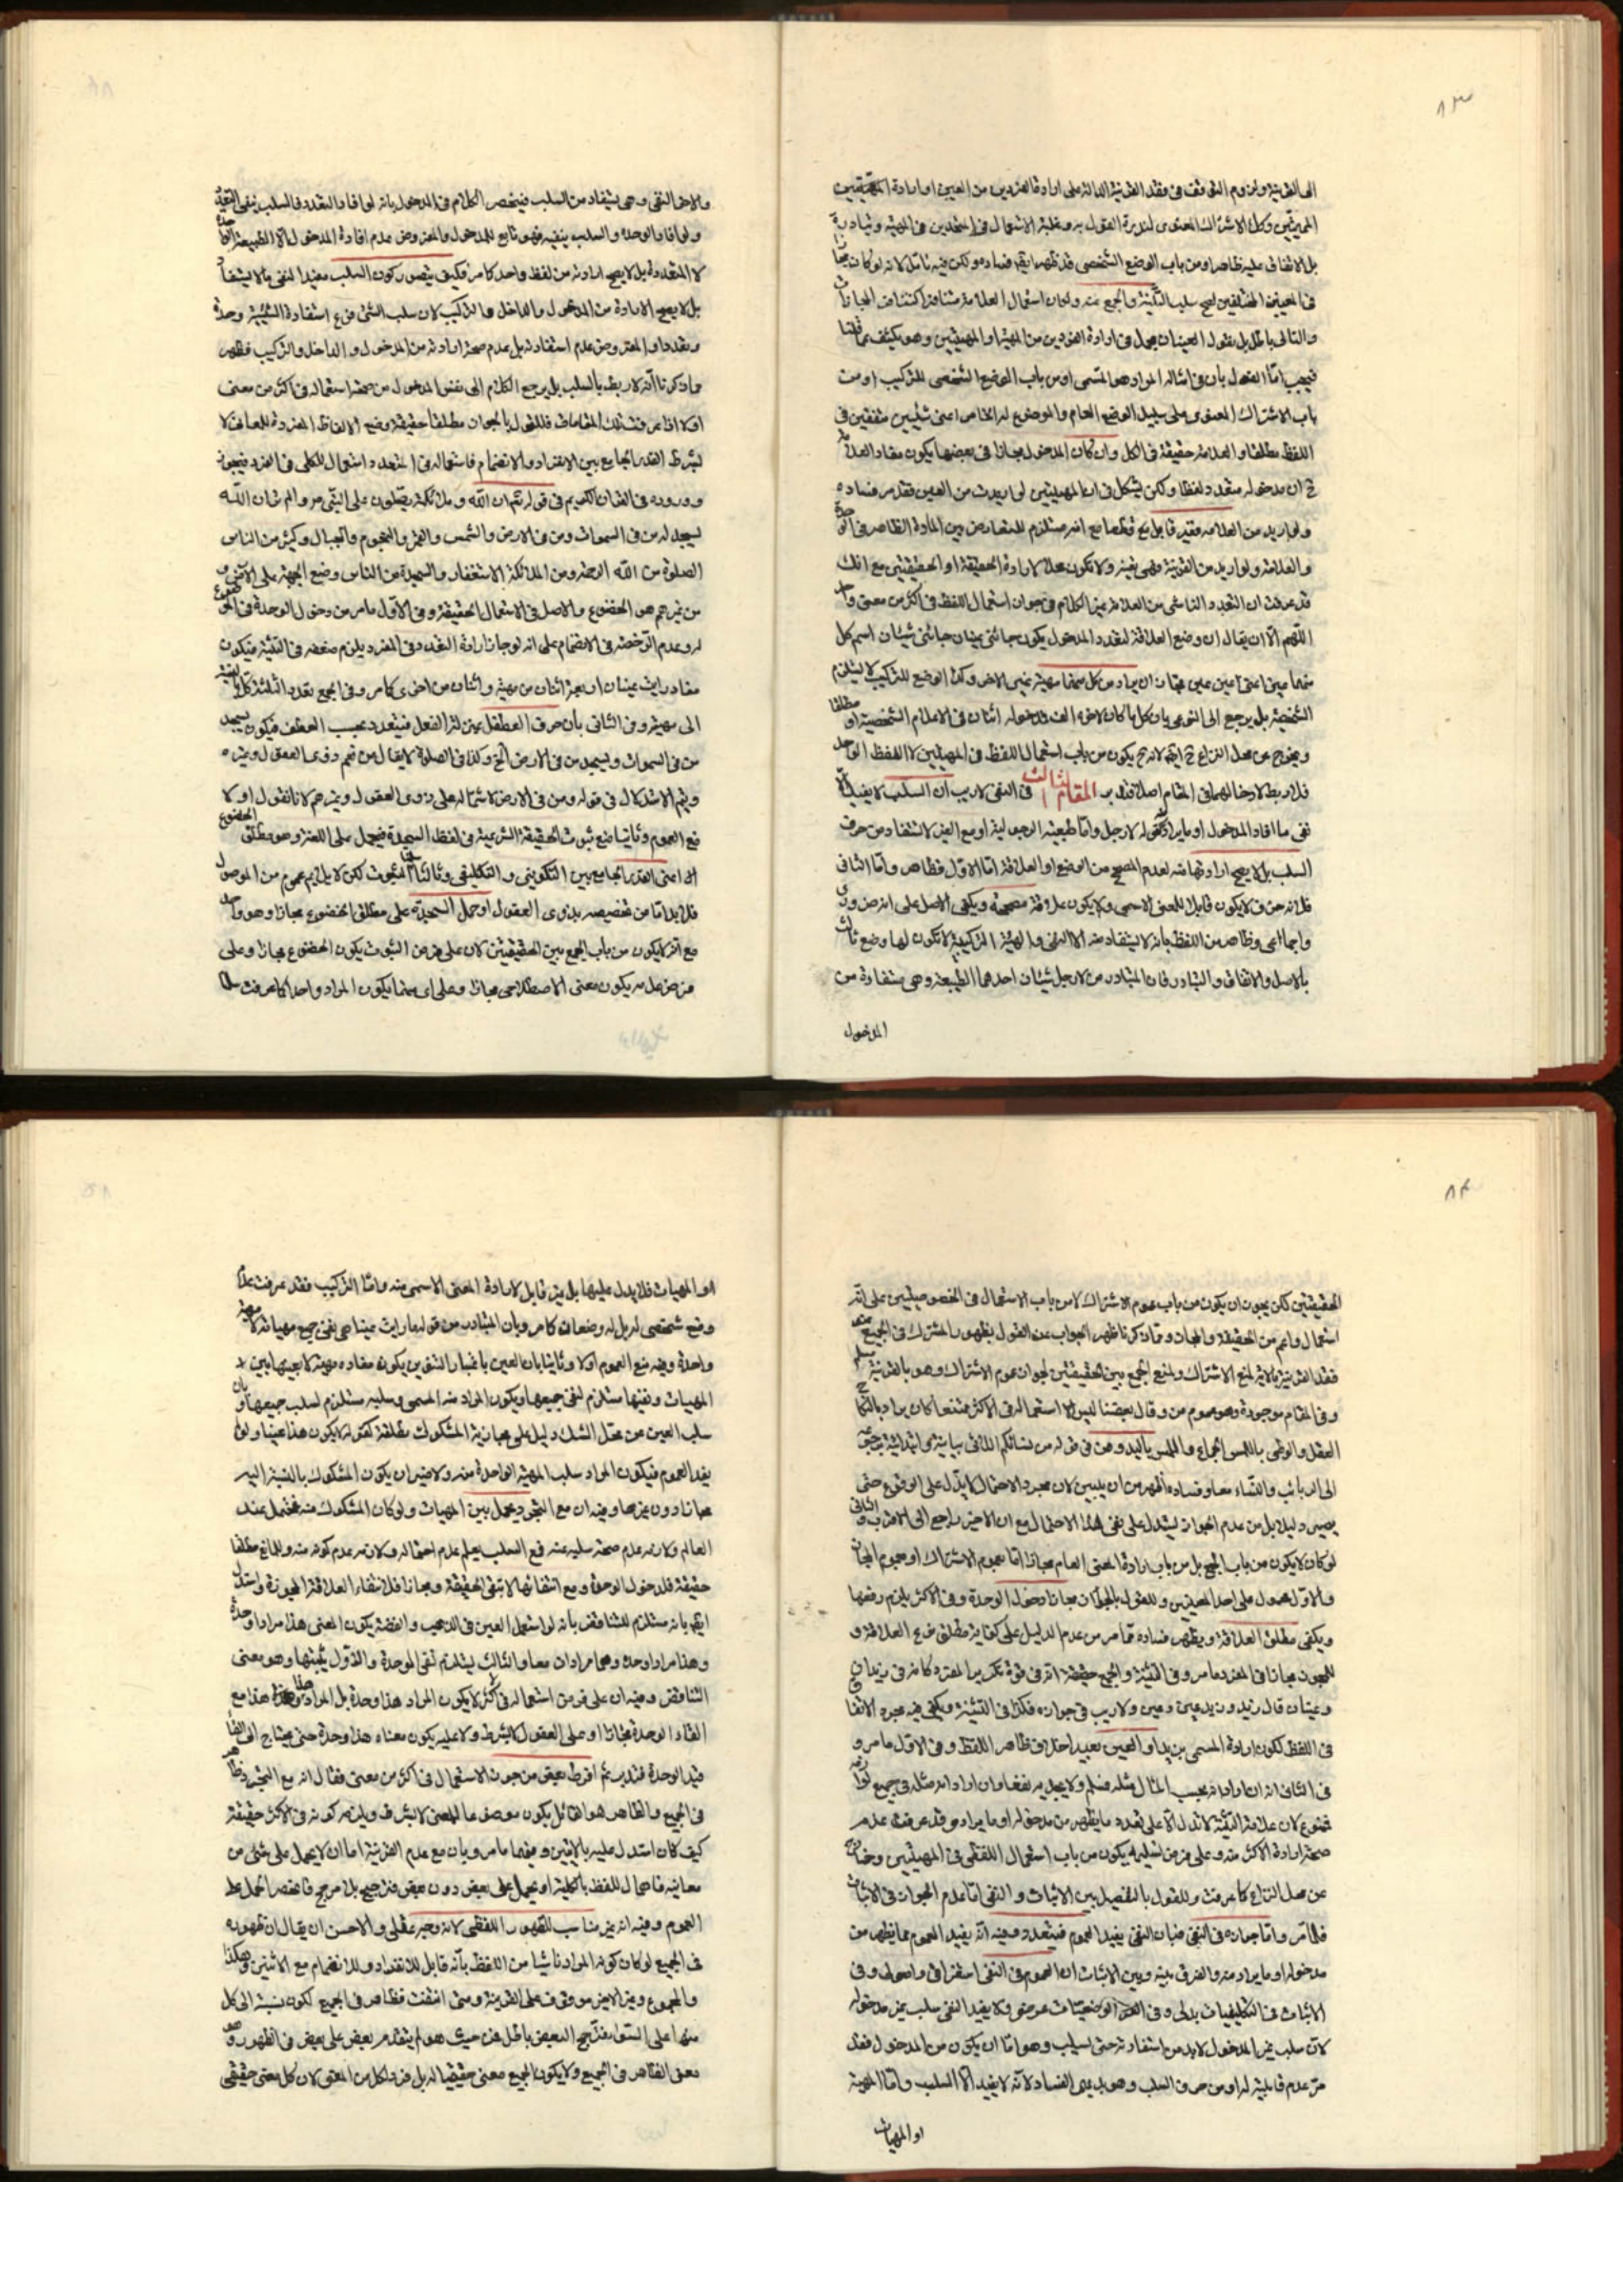 ٨٣
الى القرينة ولزوم التوقف فى فقد القرينة الدالة على ارادة الفردين من العين او ارادة الحقيقتين
المميزتين وكذا الاشتراك المعنوى لندرة القول به وغلبة الاستعمال فى المتحدين فى المهية وتبادره
بل الاتفاق عليه ظاهرا ومن باب الوضع الشخصى قد ظهر ايضا فساده ولكن فيه تامل لانه لو كان مجازا
فى المعينين المختلفين لصح سلب التثنية والجمع عنه ولكان استعمال العلامة
والتالى باطل بل نقول العينان مجمل فى ارادة الفردين من المهية او المهيتين وهو يكشف عما قلنا
فيجب اما القول بان فى امثاله المراد هو المسمى او من باب الوضع الشخصى للتركيب او من
باب الاشتراك المعنوى على سبيل الوضع العام والموضوع له الخاص اعنى شيئين متفقين فى
اللفظ مطلقا والعلامة حقيقة فى الكل وان كان المدخول مجازا فى بعضها يكون مفاد العلامة
ح ان مدخوله متعدد لفظا ولكن يشكل فى ان المهيتين لو اريدت من العين فقد مر فساده
ولو اريد من العلامة فغير قابل مع قطعا مع انه مستلزم للتعارض بين المادة الظاهر فى الوحدة
والعلامة ولو اريد من القرينة فهى تفيد ولا تكون علامة لارادة الحقيقة او الحقيقتين مع انك
قد عرفت ان التعدد الناشى من العلامة غير الكلام فى جواز استعمال اللفظ فى اكثر من معنى واحد
اللهم الا ان يقال ان وضع العلامة لتعدد المدخول يكون جائنى عينان جائنى شيئان اسم كل
منهما عين اعنى عين عين فجاز ان يراد من كل منهما مهية غير الاخر وكذا الوضع للتركيب لا يستلزم
الشخصية بل يرجع الى النوعى بان كل ما كان لاخره الف مدخوله اثنان فى الاعلام الشخصية او مطلقا
ويخرج عن محل النزاع ح ايضا لانه ح يكون من باب استعمال اللفظ فى المهيتين لا اللفظ الواحد
فلا ربط لادخالهما فى المقام اصلا فتدبر المقام الثالث فى النفى لا ريب ان السلب لا يفيد الا
نفى ما افاد المدخول او ما يراد كقوله لا رجل واما طبيعته الرجولية او مع الغير لا تستفاد من حرف
السلب بل لا يصح ارادتها منه لعدم المصحح من الوضع او العلاقة اما الاول فظاهر واما الثانى
فلانه حرف لا يكون قابلا للمعنى الاسمى ولا يكون علاقة مصححة ويكفى الاصل على انه ضرورى
واجماعى وظاهر من اللفظ بانه لا يستفاد منه الا النفى والهيئة التركيبية لا تكون لها وضع ثالث
بالاصل والاتفاق والتبادر فان المتبادر من لا رجل شيئان احدهما الطبيعة وهى مستفادة من
المدخول
والاخر النفى وهى يستفاد من السلب فينحصر الكلام فى المدخول بانه لو افاد التعدد فالسلب ينفى التعدد
ولو افاد الوحدة والسلب ينفيه فهو تابع للمدخول والمفروض عدم افادة المدخول الا الطبيعة الواحدة
لا المتعددة بل لا يصح ارادته من لفظ واحد كما مر فكيف يتصور كون السلب مفيدا لنفى ما لا يستفاد
بل لا يصح الارادة من المدخول والداخل والتركيب لان سلب الشئ فرع استفادة الشيئية وحدة
وتعددا والمفروض عدم استفادته بل عدم صحة ارادته من المدخول والداخل والتركيب فظهر
مما ذكرنا انه لا ربط بالسلب بل يرجع الكلام الى نفس المدخول من صحة استعماله فى اكثر من معنى
او لا اذا عرفت تلك المقامات فللقول بالجواز مطلقا حقيقة وضع الالفاظ المفردة للمعانى لا
بشرط القدر الجامع بين الانفراد والانضمام فاستعماله فى المتعدد استعمال للكلى فى الفرد فيجوز
وورده فى القران الكريم فى قوله تم ان الله وملائكته يصلون على النبى م والم تر ان الله
يسجد له من فى السموات ومن فى الارض والشمس والقمر والنجوم والجبال وكثير من الناس
الصلوة من الله الرحمة ومن الملائكة الاستغفار والسجدة من الناس وضع الجبهة على الارض و
من غيرهم هو الخضوع والاصل فى الاستعمال الحقيقة وفى الاول ما مر من دخول الوحدة فى الموضوع
له وعدم الرخصة فى الانضمام على انه لو جاز ارادة التعدد فى المفرد يلزم صحته فى التثنية فيكون
مفاد رايت عينان اربعة اثنان من مهية واثنان من اخرى كما مر وفى الجمع تعدد الثلثة
الى مهية وفى الثانى بان حرف العطف بمنزلة الفعل فيتعدد بحسب العطف فيكون يسجد
من فى السموات ويسجد من فى الارض الخ وكذا فى الصلوة لا يقال من تعم ذوى العقول وغيره
ويتم الاشكال فى قوله ومن فى الارض لاشتماله على ذوى العقول وغيرهم لانا نقول اولا
منع العموم وثانيا منع ثبوت الحقيقة الشرعية فى لفظ السجدة فيحمل على اللغة وهو مطلق الخضوع
اعنى القدر الجامع بين التكوينى والتكليفى وثالثا سلمنا الثبوت لكن لا يلازم عموم من الموصول
فلا بد اما من تخصيصه بذوى العقول او حمل السجدة على مطلق الخضوع مجازا وهو واحد
مع انه لا يكون من باب الجمع بين الحقيقتين لان على فرض الثبوت يكون الخضوع مجازا وعلى
فرض عدمه يكون معنى الاصطلاحى مجازا وعلى اى منهما يكون المراد واحدا كما عرفت
٨٤
الحقيقتين لكن يجوز ان يكون من باب عموم الاشتراك لا من باب الاستعمال فى الخصوصيتين على انه
استعمال واعم من الحقيقة والمجاز ومما ذكرنا ظهر الجواب عن القول بظهور المشترك فى الجميع عند
فقد القرينة بالاية لمنع الاشتراك ولمنع الجمع بين الحقيقتين لجواز عموم الاشتراك وهو بالقرينة مسلم
وفى المقام موجودة وهو عموم من وقال بعضنا ليس الاستعمال فى الاكثر ممتنعا كان يراد بالنكاح
العقد والوطى باللمس الجماع واللمس باليد ومن فى قوله من نسائكم اللاتى بيانية وابتدائية يرجع
الى الربائب والنساء معا وفساده اظهر من ان يبين لان مجرد الاحتمال لا يدل على الوقوع حتى
يصير دليلا بل من عدم الجواز يستدل على نفى هذا الاحتمال مع ان الاخير راجع الى الاقرب والثانى
لو كان لا يكون من باب الجمع بل من باب ارادة المعنى العام مجازا اما بعموم الاشتراك او عموم المجاز
والاول محمول على احد المعنيين وللقول بالجواز مجازا دخول الوحدة وفى الاكثر يلزم رفعها
ويكفى مطلق العلاقة ويظهر فساده مما مر من عدم الدليل على كفاية مطلق نوع العلاقة و
للجوز مجازا فى المفرد ما مر وفى التثنية والجمع حقيقة انه فى قوة تكرير المفرد كانه فى زيدان
وعينان قال زيد وزيد عين وعين ولا ريب فى جوازه فكذا فى التثنية ويكفى فيه مجرد الاتفاق
فى اللفظ لكون ارادة المسمى بزيد او العين بعيدا خلاف ظاهر اللفظ وفى الاول ما مر و
فى الثانى انه ان اراد انه بحسب المثال مثله فسلم ولا يجديه نفعا وان اراد انه مثله فى جميع لوازمه
فممنوع لان علامة التثنية لا تدل الا على تعدد ما يظهر من مدخوله او ما يراد وقد عرفت عدم
صحة ارادة الاكثر منه وعلى فرض تسليمه يكون من باب استعمال اللفظى فى المهيتين وخارج
عن محل النزاع كما عرفت وللقول بالتفصيل بين الاثبات والنفى اما عدم الجواز فى الاثبات
فلما مر واما جوازه فى النفى فبان النفى يفيد العموم فيتعدد وفيه انه يفيد العموم مما يظهر من
مدخوله او ما يراد منه والفرق بينه وبين الاثبات ان العموم فى النفى استغراقى واصولى وفى
الاثبات فى التكليفيات بدلى وفى الوضعيات عرضى ولا يفيد النفى سلب غير مدخوله
لان سلب غير المدخول لا بد من استفادته حتى يسلب وهو اما ان يكون من المدخول فقد
مر عدم قابليته له او من حرف السلب وهو بديهى الفساد لانه لا يفيد الا السلب واما المهية
او المهيات
او المهيات فلا يدل عليها بل غير قابل لارادة المعنى الاسمى منه واما التركيب فقد عرفت عدم
وضع شخصى له بل له وضعان كما مر وبان المتبادر من قوله ما رايت عينا هى نفى جميع مهياته لا مهية
واحدة وفيه منع العموم اولا وثانيا بان العين باعتبار التنوين يكون مفاده مهية لا بعينها بين
المهيات ونفيها مستلزم لنفى جميعها ويكون المراد منه المسمى وسلبه مستلزم لسلب جميعها وبان
سلب العين عن محل الشك دليل على مجازية المشكوك مطلقة كقوله لا يكون هذا عينا ولو لم
يفد العموم فيكون المراد سلب المهية الواحدة منه ولا ضير ان يكون المشكوك بالنسبة اليه
مجازا دون غيرها وفيه ان مع التجرد يحمل بين المهيات ولو كان المشكوك منه محتمل عند
العالم ولازمه عدم صحة سلبه عنه فمع السلب يعلم عدم احتماله ولازمه عدم كونه منه وللمانع مطلقا
حقيقة فلدخول الوحدة ومع انتفائها لا تبقى الحقيقة ومجازا فلانتفاء العلاقة المجوزة واستدل
ايضا بانه مستلزم للتناقض بانه لو استعمل العين فى الذهب والفضة يكون المعنى هذا مرادا وحده
وهذا مرادا وحده وهما مرادات معا والثالث يستلزم نفى الوحدة والاول يثبتها وهو معنى
التناقض وفيه ان على فرض استعماله فى اكثر لا يكون المراد هذا وحده بل المراد هذا مع
الغاء الوحدة مجازا او على القول لا بشرط ولا عليه يكون معناه هذا وحده حتى يحتاج الى الغاء
قيد الوحدة فتدبر ثم افرط بعض من جوز الاستعمال فى اكثر من معنى فقال انه مع التجرد ظاهر
فى الجميع والظاهر هو القائل بكون موضوعا للمعنى لا بشرط ويلزمه كونه فى الاكثر حقيقة
كيف كان استدل عليه بالايتين وفيهما ما مر وبان مع عدم القرينة اما ان لا يحمل على شئ من
معانيه فاهمال للفظ بالكلية او يحمل على بعض دون بعض فترجيح بلا مرجح فانحصر الحمل على
العموم وفيه انه غير مناسب للظهور اللفظى لانه وجه عقلى والاحسن ان يقال ان ظهوره
فى الجميع لو كان كونه المراد ناشيا من اللفظ بانه قابل للانفراد وللانضمام مع الاثنين وهكذا
والمجموع وغير الاخير موقوف على القرينة ومتى انتفت فظاهر فى الجميع لكون نسبته الى كل
منها على السواء فترجيح البعض باطل من حيث هو لم يتقدم بعض على بعض فى الظهور وهو
معنى الظاهر فى الجميع ولا يكون الجميع معنى حقيقيا له بل فردا لكل من المعنى لان كل معنى حقيقى